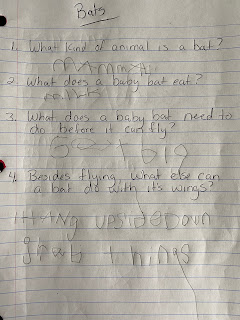 Bats
1. What kind of animal is a bat?
2. What does a baby bat eat?
3. What does a baby bat need to
do before it can fly?
big
4. Besides flying, what else can
a bat do with it's wings?
Hang upsidedown
things